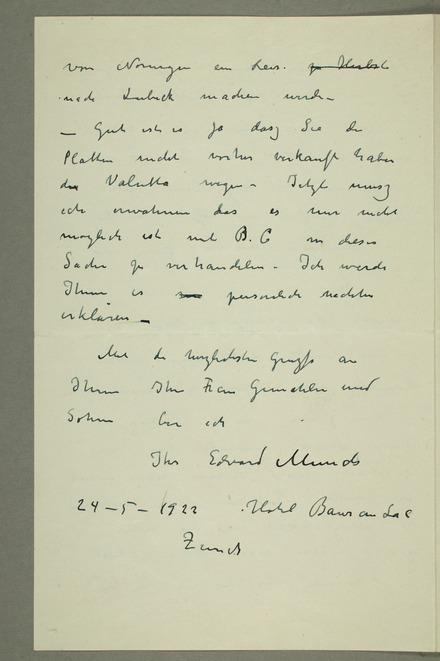 von Norwegen ein Reis. zu Herbst
nach Lubeck machen werde –
– Gut ist es ja dasz Sie die
Platten nicht vorher verkauft haben
der Valutta wegen – Jetzt musz
ich erwähnen das es mir nicht
moglich ist mit B. C in dieser
Sache zu verhandeln – Ich werde
Ihnen es personlich nachher
erklären –
Mit die herzlichsten Grüsse an
Ihnen Ihr Frau Gemahlin und
Sohne bin ich
Ihr Edvard Munch
24–5–1922 Hotel Baur au Lac
Zurich